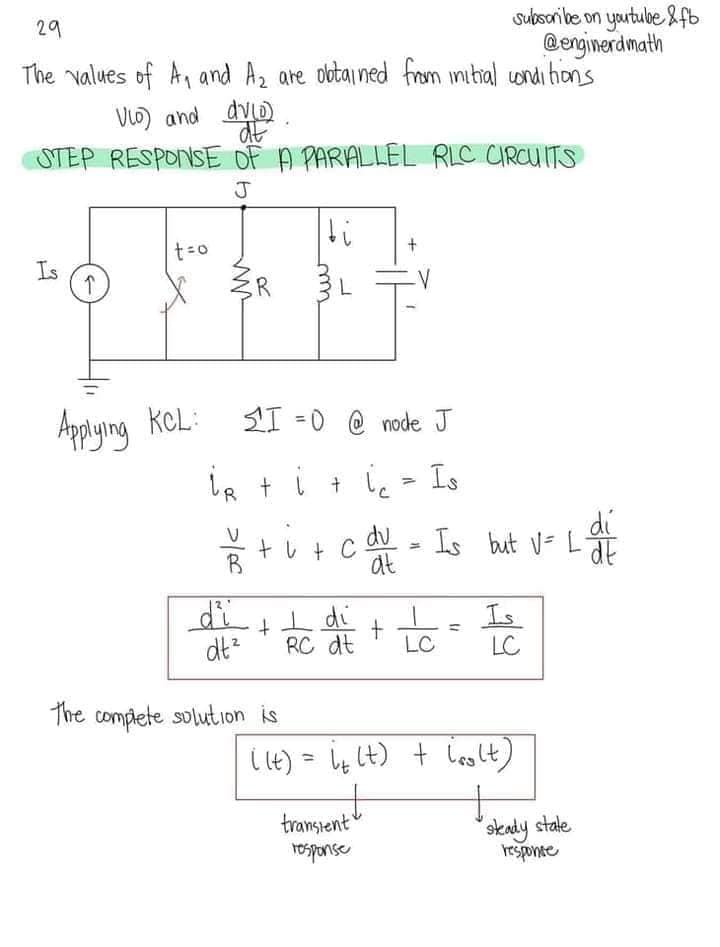 29
subscribe on youtube & fb
@enginerdmath
The values of A₁ and A₂ are obtained from initial conditions
V(0) and dv(0)/dt .
STEP RESPONSE OF A PARALLEL RLC CIRCUITS
J
Is
t=0
R
↓i
L
+
V
-
Applying KCL: ΣI = 0 @ node J
i_R + i + i_c = Is
V/R + i + C dv/dt = Is but V = L di/dt
d²i/dt² + 1/RC di/dt + 1/LC = Is/LC
The complete solution is
i(t) = i_t(t) + i_ss(t)
transient
response
steady state
response